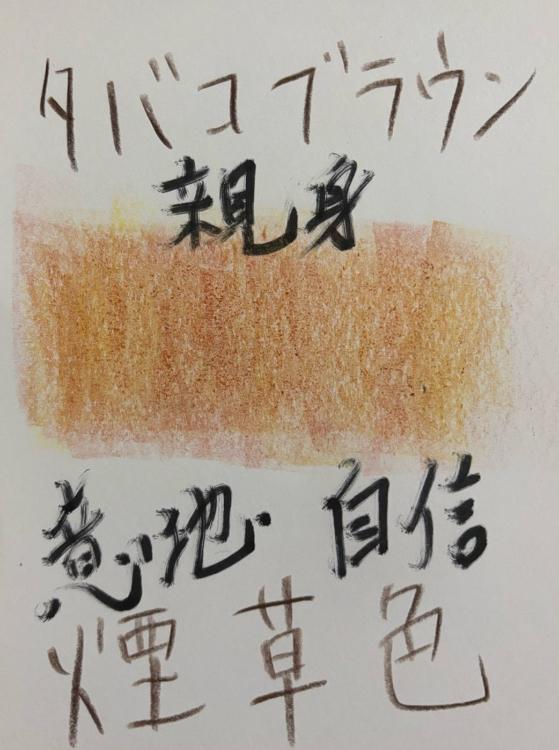 タバコブラウン
親身
意地・自信
煙草色